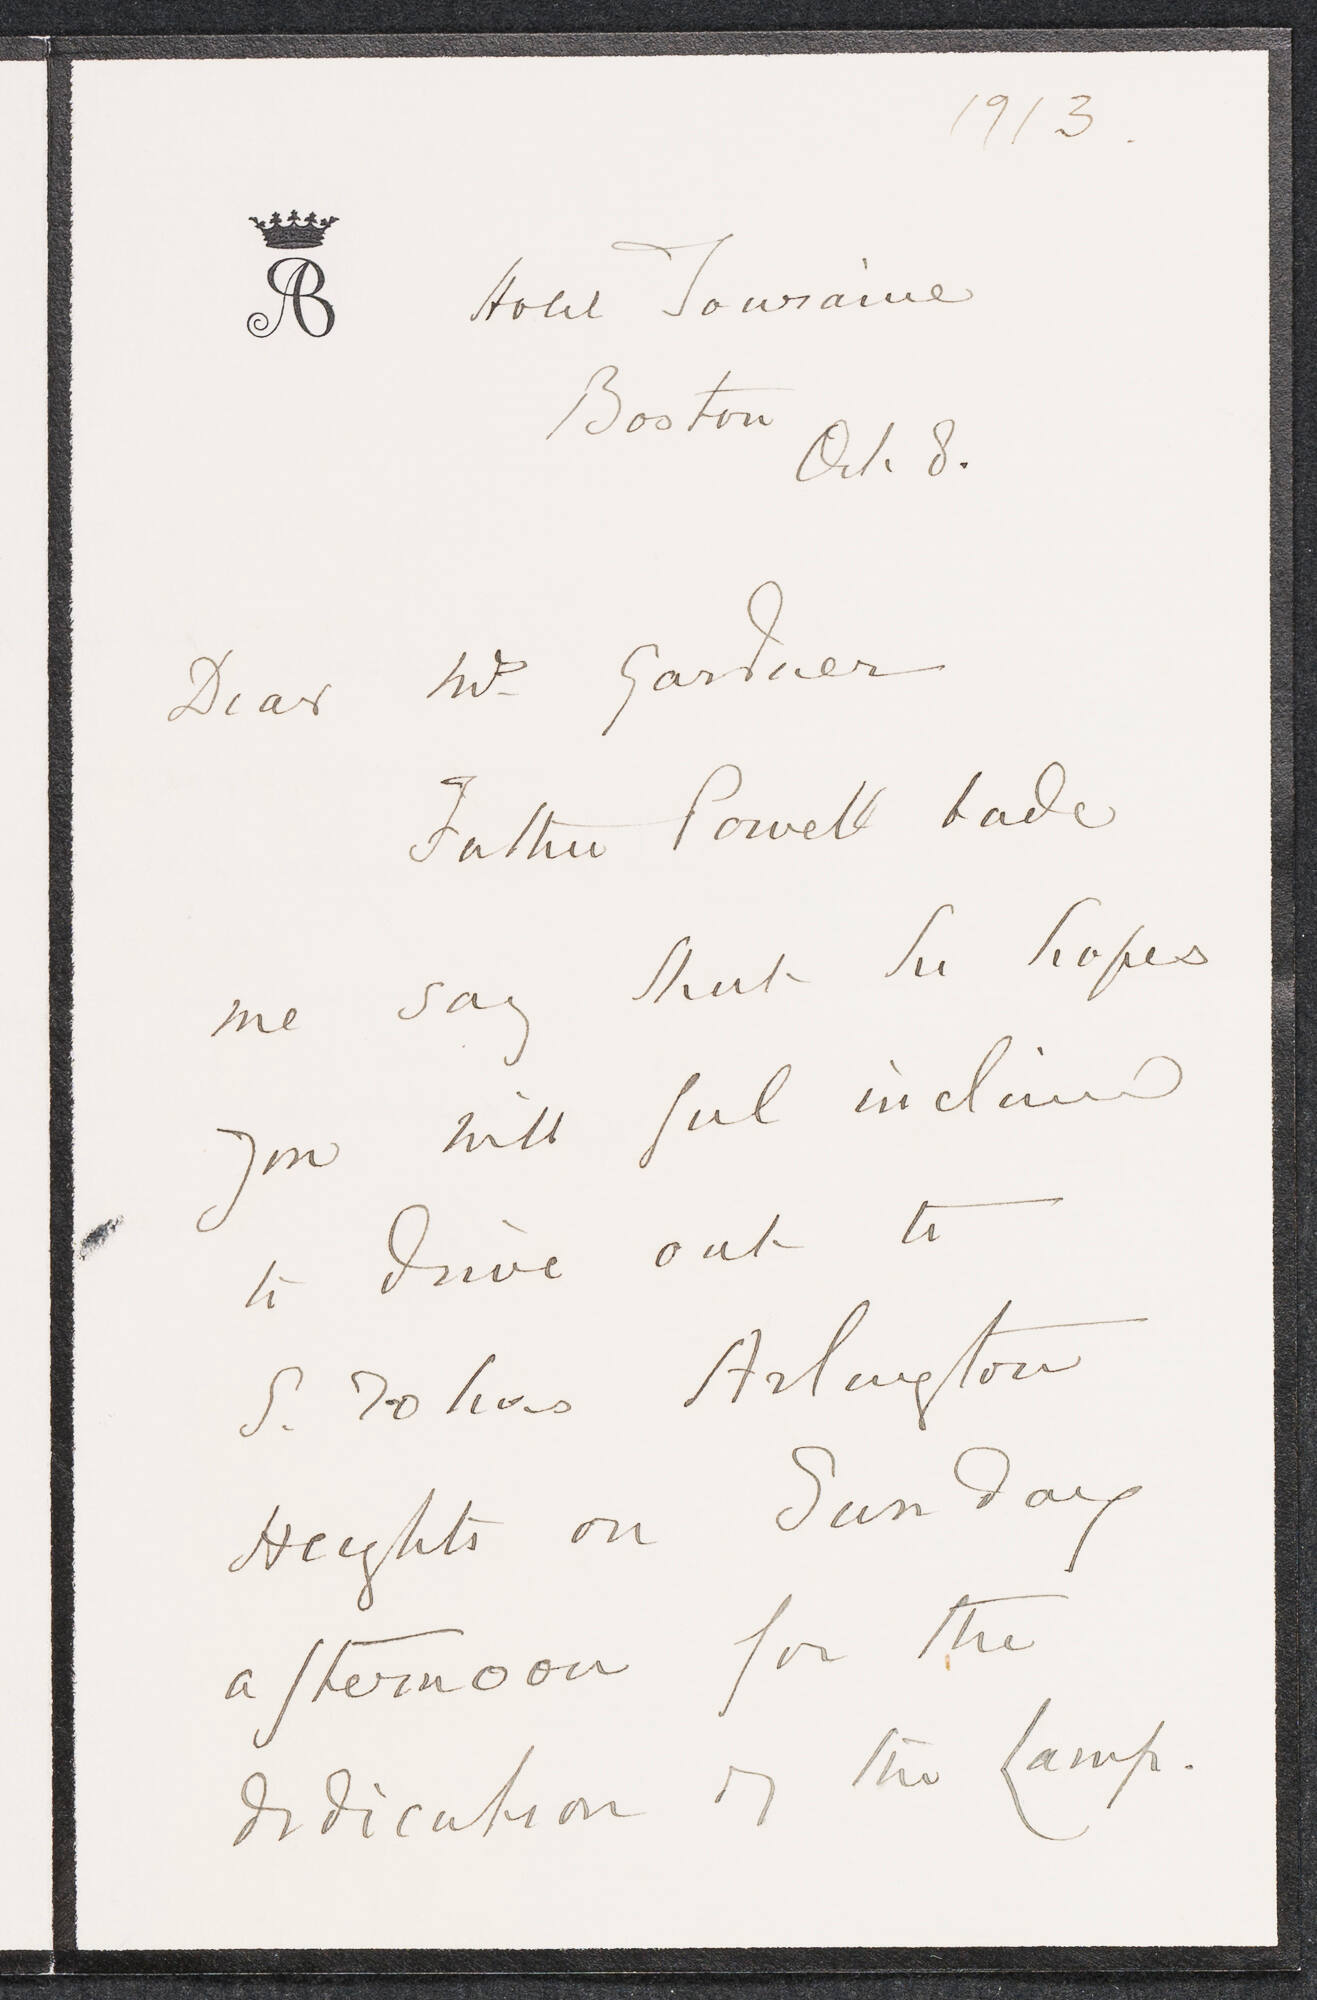 1913.
AB
Hotel Touraine
Boston
Oct. 8.
Dear Mrs Gardner
Father Powell bade
me say that he hopes
you will feel inclined
to drive out to
S. Johns Arlington
Heights on Sunday
afternoon for the
dedication of the Lamp.